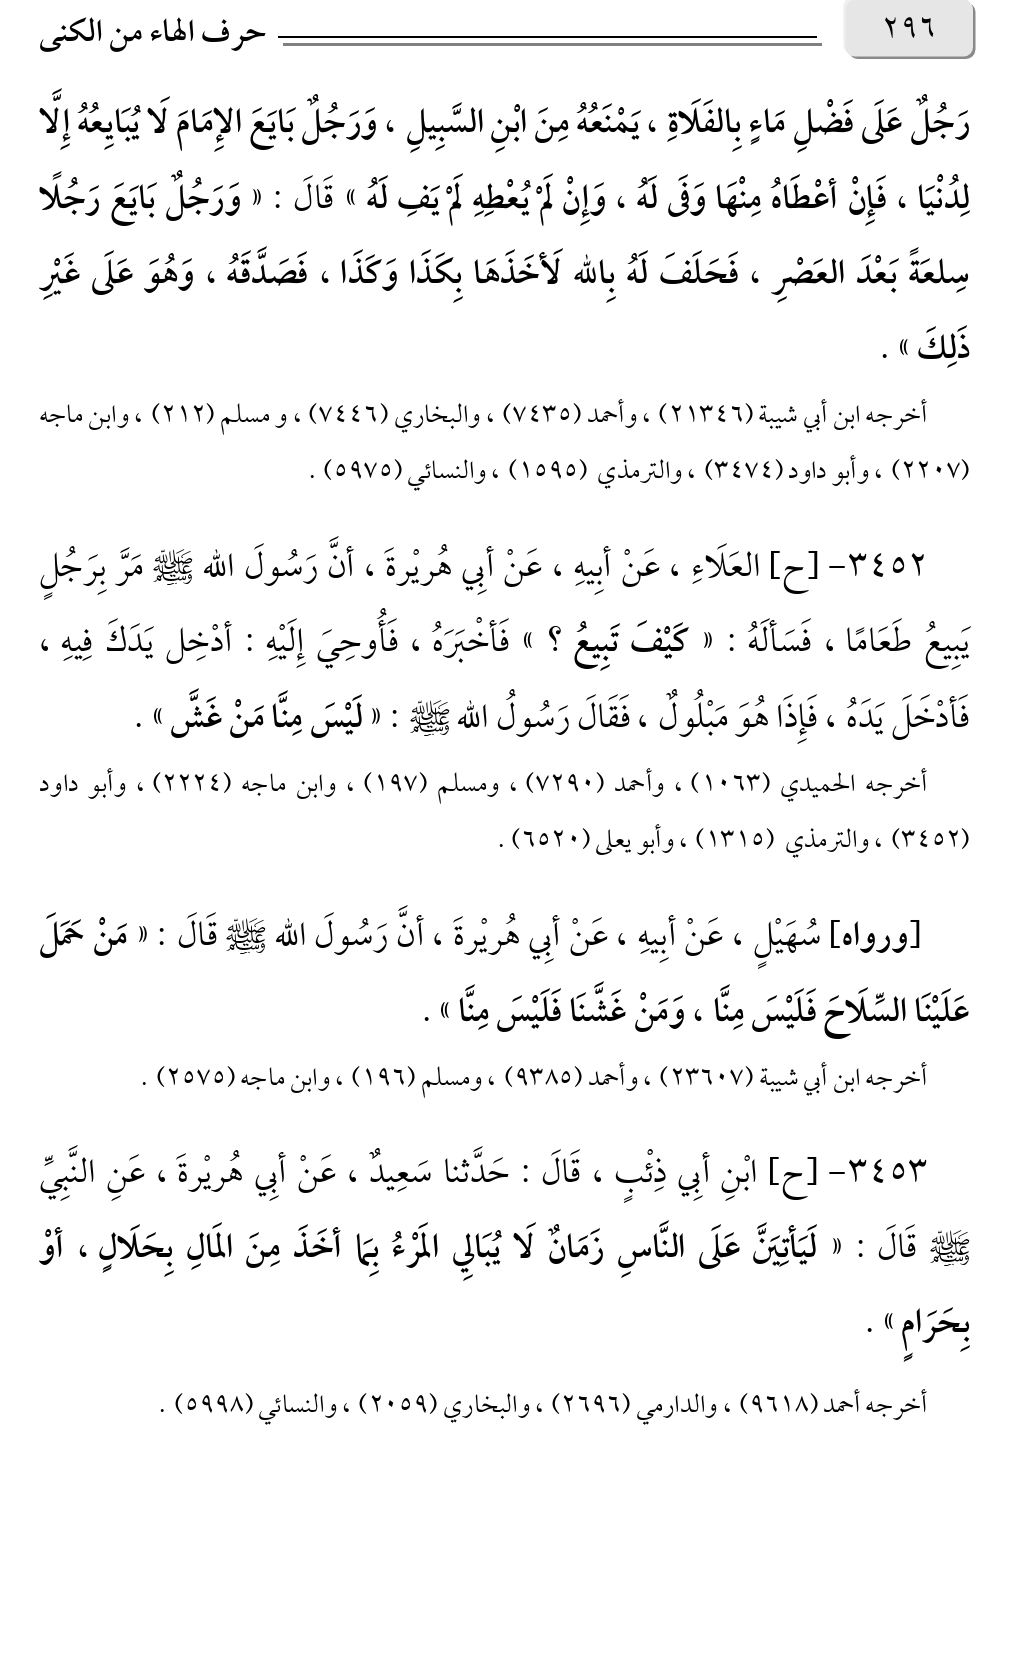 ٢٩٦ حرف الهاء من الكنى
رَجُلٌ عَلَى فَضْلِ مَاءٍ بِالفَلَاةِ ، يَمْنَعُهُ مِنَ ابْنِ السَّبِيلِ ، وَرَجُلٌ بَايَعَ الإِمَامَ لَا يُبَايِعُهُ إِلَّا
لِدُنْيَا ، فَإِنْ أعْطَاهُ مِنْهَا وَفَى لَهُ ، وَإِنْ لَمْ يُعْطِهِ لَمْ يَفِ لَهُ » قَالَ : « وَرَجُلٌ بَايَعَ رَجُلًا
سِلعَةً بَعْدَ العَصْرِ ، فَحَلَفَ لَهُ بِالله لَأخَذَهَا بِكَذَا وَكَذَا ، فَصَدَّقَهُ ، وَهُوَ عَلَى غَيْرِ
ذَلِكَ » .
أخرجه ابن أبي شيبة (٢١٣٤٦) ، وأحمد (٧٤٣٥) ، والبخاري (٧٤٤٦) ، و مسلم (٢١٢) ، وابن ماجه
(٢٢٠٧) ، وأبو داود (٣٤٧٤) ، والترمذي (١٥٩٥) ، والنسائي (٥٩٧٥) .
٣٤٥٢- [ح] العَلَاءِ ، عَنْ أبِيهِ ، عَنْ أبِي هُرَيْرةَ ، أنَّ رَسُولَ الله ﷺ مَرَّ بِرَجُلٍ
يَبِيعُ طَعَامًا ، فَسَألَهُ : « كَيْفَ تَبِيعُ ؟ » فَأخْبَرَهُ ، فَأُوحِيَ إِلَيْهِ : أدْخِل يَدَكَ فِيهِ ،
فَأدْخَلَ يَدَهُ ، فَإِذَا هُوَ مَبْلُولٌ ، فَقَالَ رَسُولُ الله ﷺ : « لَيْسَ مِنَّا مَنْ غَشَّ » .
أخرجه الحميدي (١٠٦٣) ، وأحمد (٧٢٩٠) ، ومسلم (١٩٧) ، وابن ماجه (٢٢٢٤) ، وأبو داود
(٣٤٥٢) ، والترمذي (١٣١٥) ، وأبو يعلى (٦٥٢٠) .
[ورواه] سُهَيْلٍ ، عَنْ أبِيهِ ، عَنْ أبي هُريْرةَ ، أنَّ رَسُولَ الله ﷺ قَالَ : « مَنْ حَمَلَ
عَلَيْنَا السِّلَاحَ فَلَيْسَ مِنَّا ، وَمَنْ غَشَّنَا فَلَيْسَ مِنَّا » .
أخرجه ابن أبي شيبة (٢٣٦٠٧) ، وأحمد (٩٣٨٥) ، ومسلم (١٩٦) ، وابن ماجه (٢٥٧٥) .
٣٤٥٣- [ح] ابْنِ أبِي ذِئْبٍ ، قَالَ : حَدَّثنا سَعِيدٌ ، عَنْ أبِي هُريْرةَ ، عَنِ النَّبِيِّ
ﷺ قَالَ : « لَيَأتِيَنَّ عَلَى النَّاسِ زَمَانٌ لَا يُبَالِي المَرْءُ بِمَا أخَذَ مِنَ المَالِ بِحَلَالٍ ، أوْ
بِحَرَامٍ » .
أخرجه أحمد (٩٦١٨) ، والدارمي (٢٦٩٦) ، والبخاري (٢٠٥٩) ، والنسائي (٥٩٩٨) .